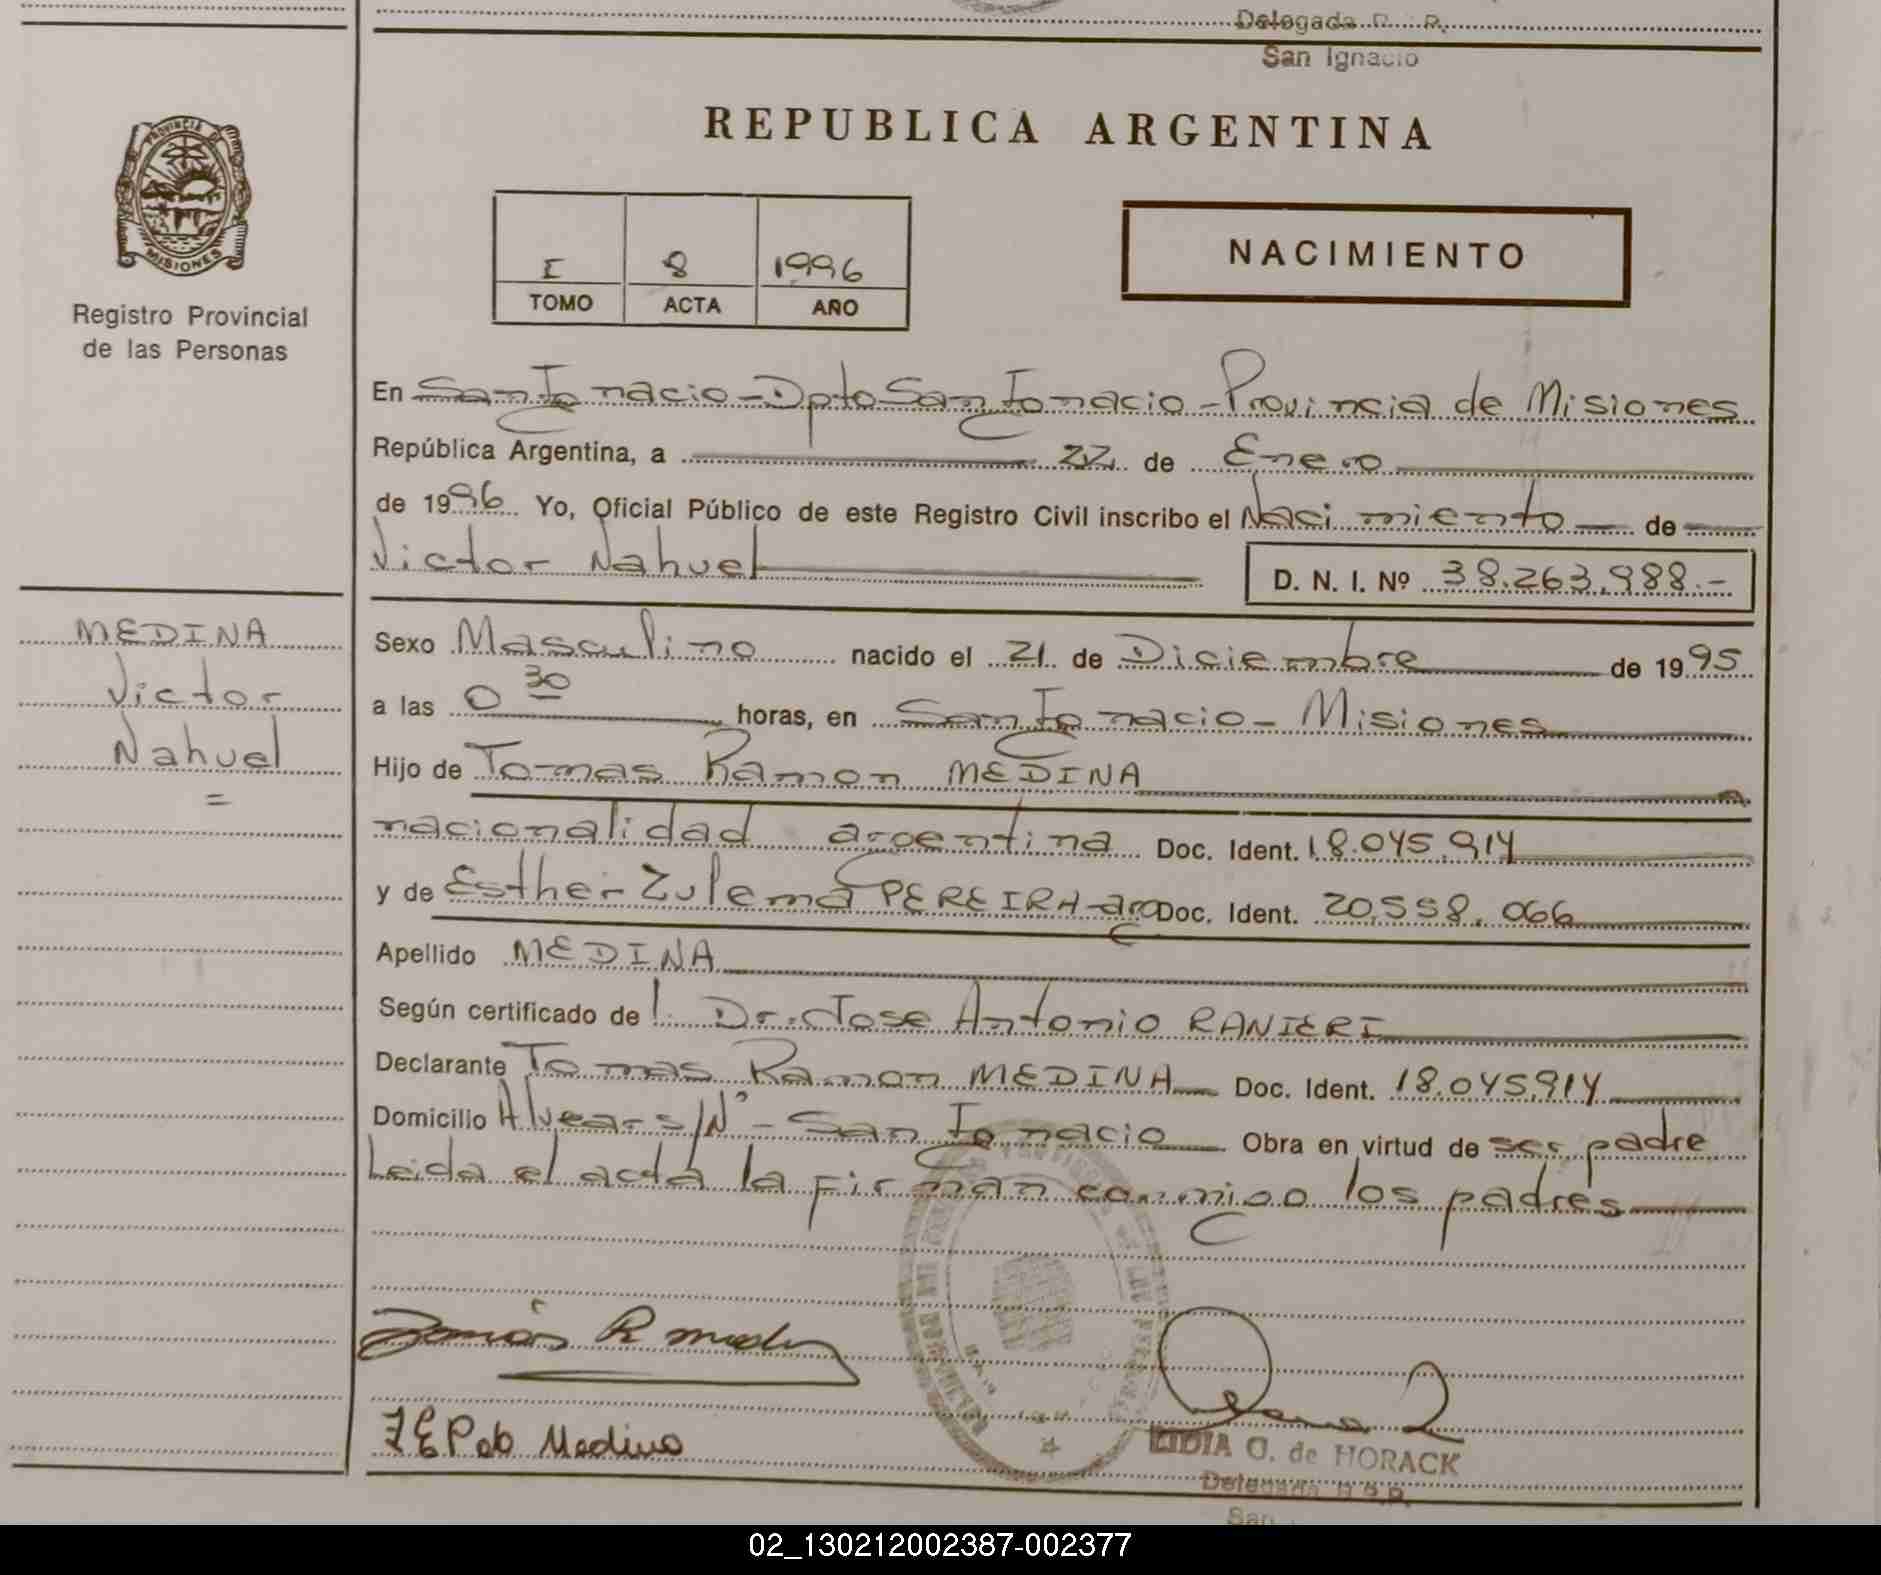 Delegada R. P.
San Ignacio
REPUBLICA ARGENTINA
PROVINCIA D
MISIONES
Registro Provincial
de las Personas
I 8 1996
TOMO ACTA AÑO
NACIMIENTO
En San Ignacio - Dpto San Ignacio - Provincia de Misiones
República Argentina, a 22 de Enero
de 1996 Yo, Oficial Público de este Registro Civil inscribo el Nacimiento de
Victor Nahuel
D. N. I. Nº 38.263.988.-
MEDINA
Victor
Nahuel
=
Sexo Masculino nacido el 21 de Diciembre de 1995
a las 0 30 horas, en San Ignacio - Misiones
Hijo de Tomas Ramon MEDINA
nacionalidad argentina Doc. Ident. 18.045.914
y de Esther Zulema PEREIRA - arg Doc. Ident. 20.558.066
Apellido MEDINA
Según certificado de l. Dr. Jose Antonio RANIERI
Declarante Tomas Ramon MEDINA Doc. Ident. 18.045.914
Domicilio Alvear s/Nº - San Ignacio Obra en virtud de ser padre
Leida el acta la firman conmigo los padres
Tomás R medina
Medina
LIDIA O. de HORACK
Delegada R. P.
San
02_130212002387-002377